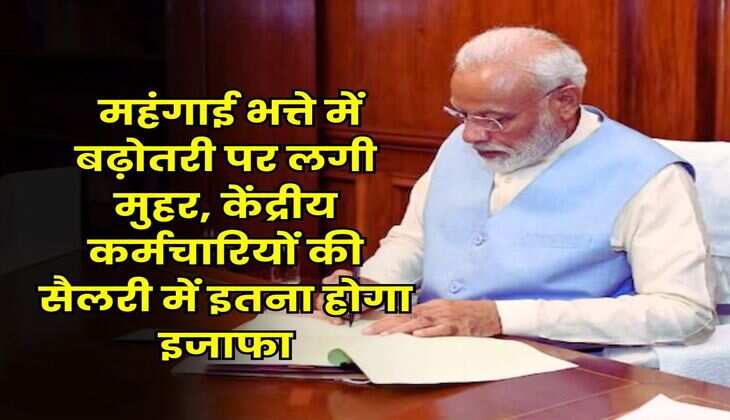 महंगाई भत्ते में
बढ़ोतरी पर लगी
मुहर, केंद्रीय
कर्मचारियों की
सैलरी में इतना होगा
इजाफा